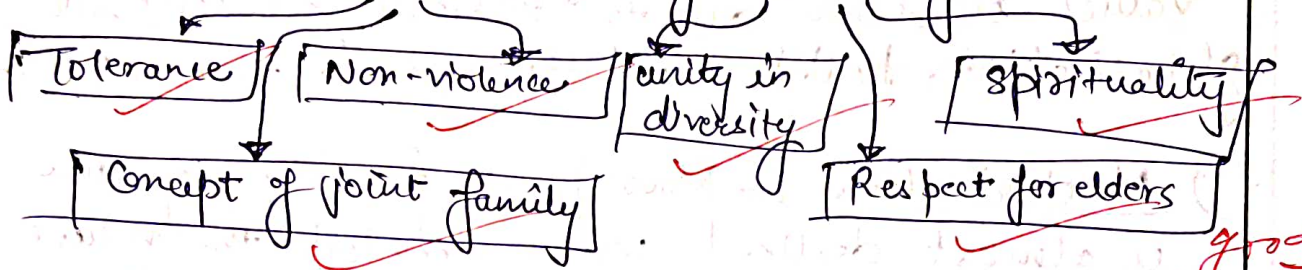 Tolerance
Non-violence
unity in
diversity
Spirituality
Concept of joint family
Respect for elders